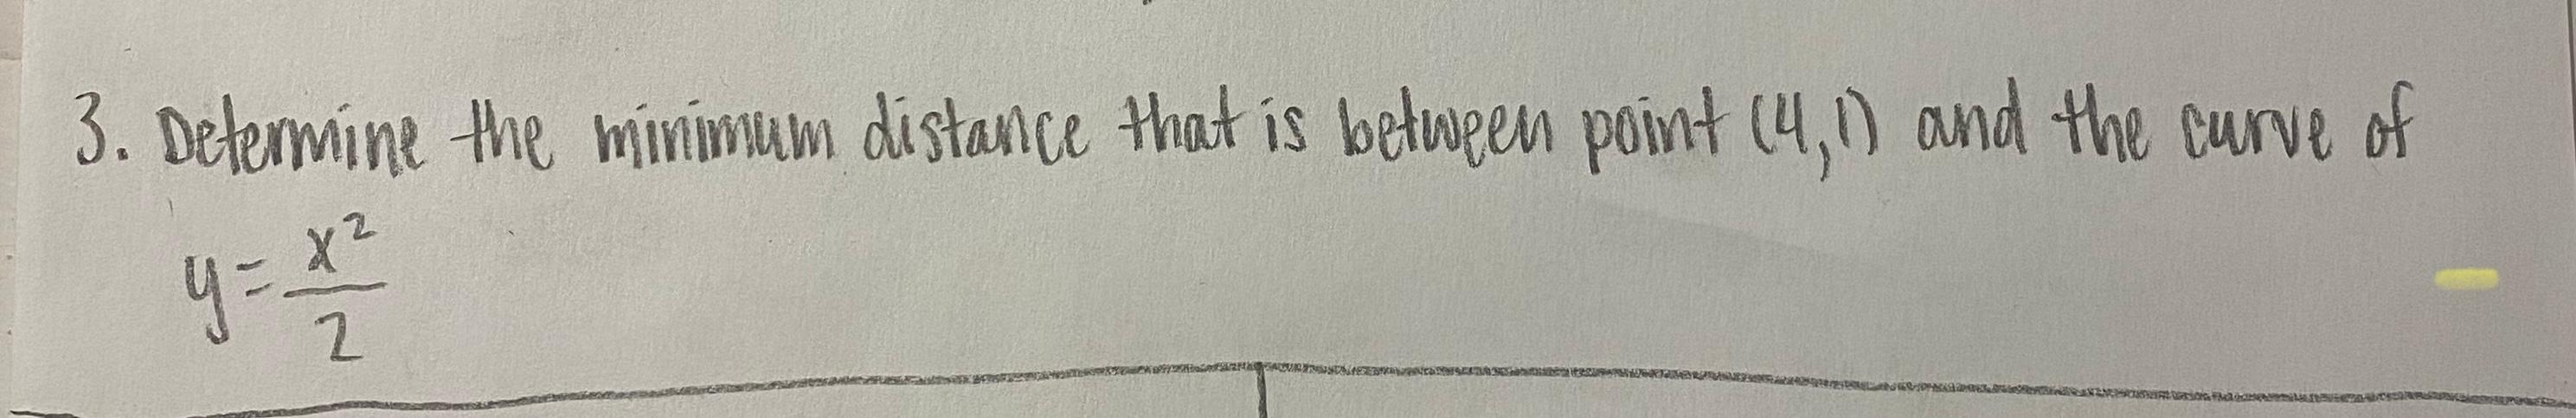 3. Determine the minimum distance that is between point (4,1) and the curve of
y = x²/2